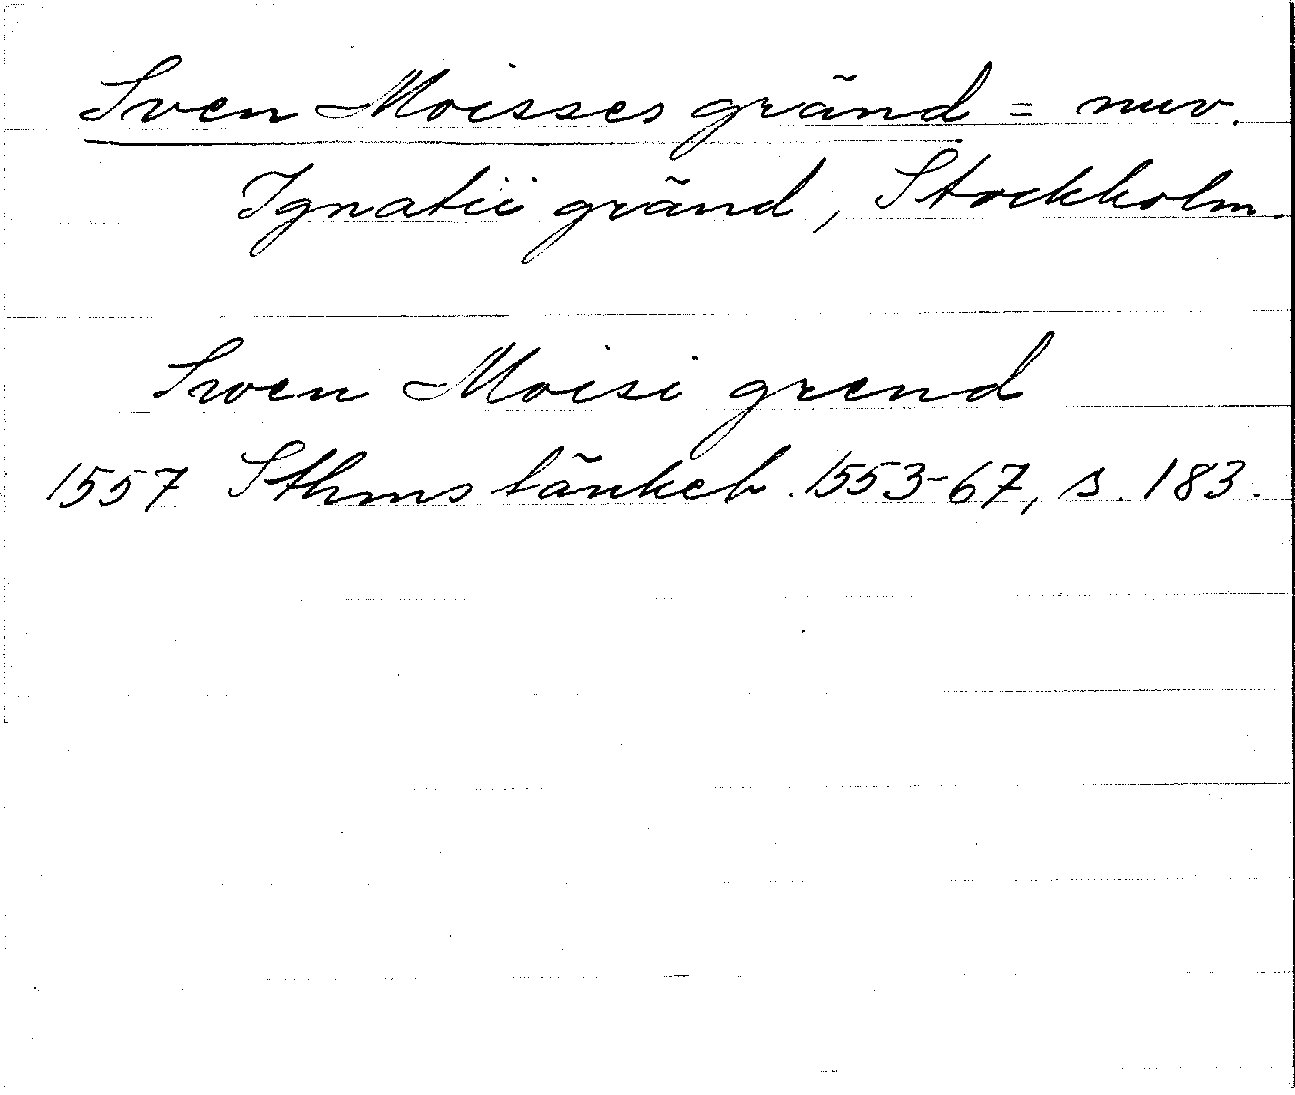 Sven Moisses gränd = nuv.
Ignatii gränd, Stockholm.
Swen Moisi grend
1557 Sthms tänkeb. 1553-67, s. 183.